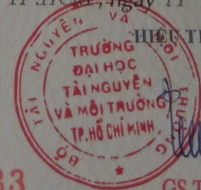 ngày
HIỆU T
BỘ TÀI NGUYÊN VÀ MÔI TRƯỜNG
TRƯỜNG
ĐẠI HỌC
TÀI NGUYÊN
VÀ MÔI TRƯỜNG
TP.HỒ CHÍ MINH
33
GS.T